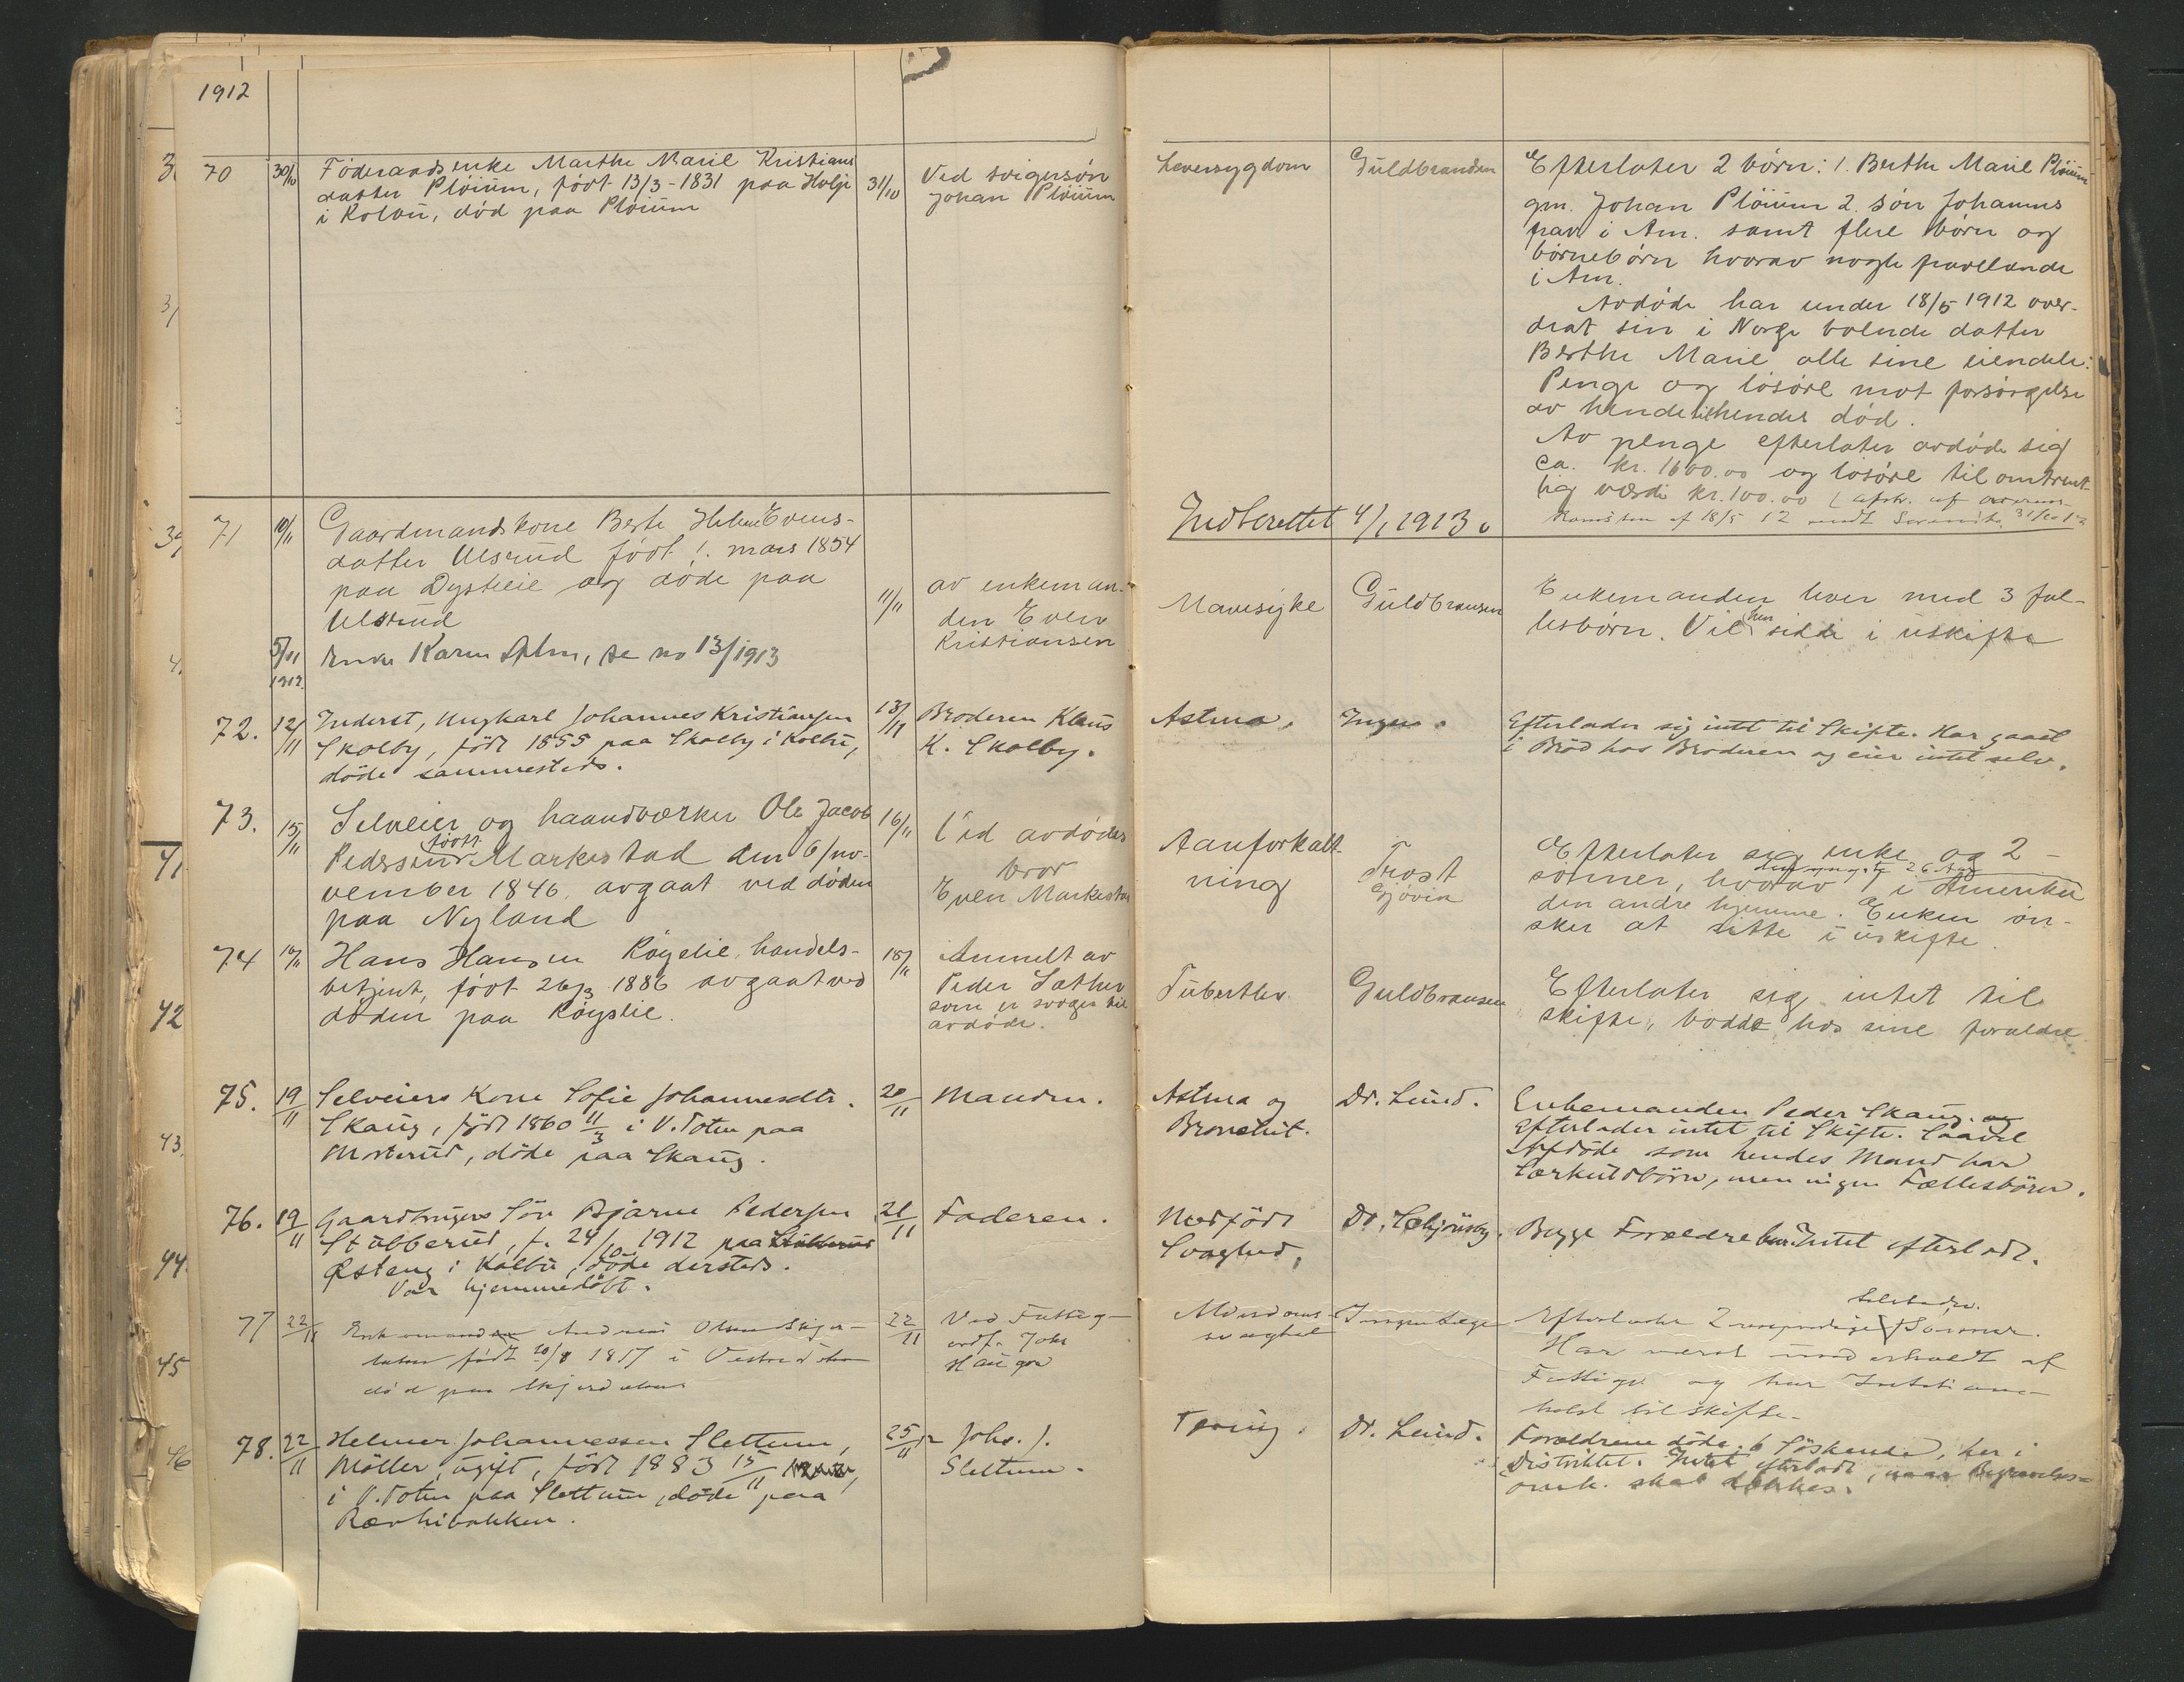 1912
70 30/10 Föderaadsenke Marthe Marie Kristians
datter Plöium, födt 13/3-1831 paa Holje
i Kolbu, död paa Plöium
31/10 Ved svigersön
Johan Plöium
Leversygdom Guldbransen
Efterlater 2 börn: 1. Berthe Marie Plöium
gm. Johan Plöium 2. sön Johannes
frav. i Am. samt flere börn og
börnebörn hvorav nogle fraværlande
i Am.
Avdöde har under 18/5 1912 over-
drat sin i Norge boende datter
Berthe Marie alle sine eiendele:
Penge og lösöre mot forsörgelse
av hende til hendes död.
Av penge efterlater avdöde sig
ca. kr. 1600.00 og lösöre til omtrent-
lig værdi kr. 100.00 (afskr. af overens-
komsten af 18/5 12 sendt 31/10 12
Indberettet 4/1 1913.
71 10/11 Gaardmandskone Berte Helene Evens-
datter Ulsrud födt 1. mars 1854
paa Dysteeie og döde paa
Ulsrud
11/11 av enkeman-
den Even
Kristiansen
Mavesyke Guldbransen
Enkemanden lever med 3 fæl-
lesbörn. Vil hen sidde i uskifte
5/11 1912. Enke Karen Alm, se no 13/1913
72. 12/11 Inderst, Ungkarl Johannes Kristiansen
Skolby, födt 1855 paa Skolby i Kolbu,
döde sammesteds.
13/11 Broderen Klaus
K. Skolby.
Astma. Ingen.
Efterlader sig intet til Skifte. Har gaaet
i Bröd hos Broderen og eier intet selv.
73. 15/11 Selveier og haandværker Ole Jacob
Pedersen Markestad födt den 6/no-
vember 1846. avgaat ved döden
paa Nyland
16/11 Ved avdödes
bror
Even Markestad
Aareforkalk-
ning
Trost
Gjövik
Efterlater sig enke og 2
sönner, hvorav 1 i Amerika
den andre hjemme. Enken ön-
sker at sitte i uskifte.
74 16/11 Hans Hansen Röyslie, handels-
betjent, födt 26/3 1886 avgaat ved
döden paa Röyslie.
18/11 Anmelt av
Peder Sæther
som er svoger til
avdöde.
Tuberklos Guldbransen
Efterlater sig intet til
skifte, bodde hos sine foraldre
75. 19/11 Selveiers Kone Sofie Johannesdtr.
Skaug, födt 1860 11/3 i V. Toten paa
Mosterud, döde paa Skaug.
20/11 Manden.
Astma og
Bronchit.
Dr. Lund.
Enkemanden Peder Skaug. og
Efterlader intet til Skifte. Saavel
Afdöde som hendes Mand har
Særkuldbörn, men ingen Fællesbörn.
76. 19/11 Gaardbrugers Sön Bjarne Pedersen
Stubberud, f. 24/10 1912 paa Stubberud
Østeng i Kolbu, döde dersteds.
Var hjemmedöbt.
21/11 Faderen.
Medfödt
Svaghed.
Dr.
Begge Forældre lever. Intet efterladt.
77 22/11 Enkemanden Andreas Olsen
födt 20/8 1817 i Vestre Toten
död paa
22/11 Ved Fattig-
ordf. Johs
Haugen
Alderdoms-
svaghet
Ingen læge
Efterlader 2 myndige Sönner.
Har været underholdt af
Fattigv. og har Intet
til skifte.
78. 22/11 Helmer Johannessen Slettum,
Möller, ugift, födt 1883 15/11
i V. Toten paa Slettum, döde paa
25/11 Johs. J.
Slettum.
Tæring. Dr. Lund.
Forældrene döde. 6 Söskende, her i
Distriktet. Intet efterladt, naar Begravelses-
omk. skal dækkes.
3
3
39
4
41
42
43.
44.
45
46